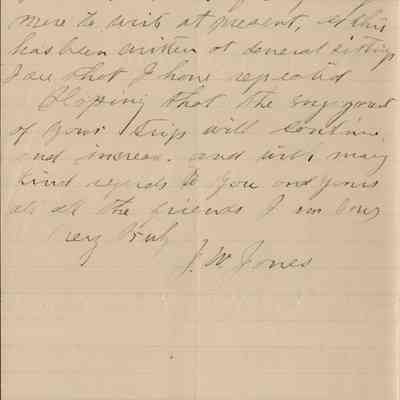 more to write at present, as this
has been written at several sittings
I see that I have repeated
Hoping that the enjoyment
of your trip will continue
and increase. and with many
kind regards to you and yours
als all the friends I am Yours
very Truly
J. W. Jones